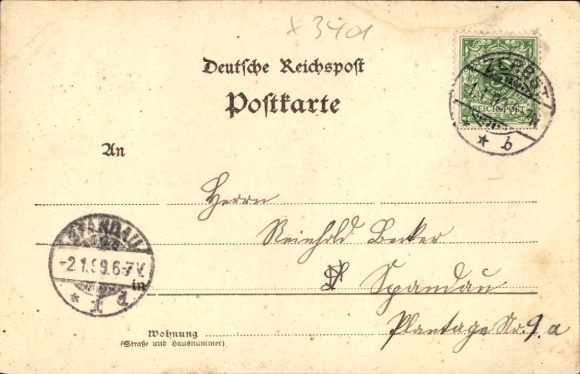 x 3401
Deutsche Reichspost
Postkarte
ZERBST
REICHSPOST
* * b
An
Herrn
Reinhold Becker
SPANDAU
-2.1.99.6-7V.
* 1 d
in
Spandau
Plantage No. 9. a
Wohnung
(Straße und Hausnummer)